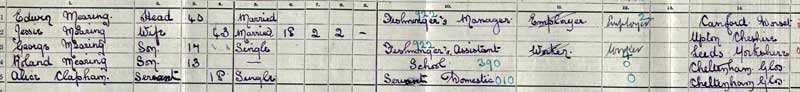 1 Edwin Mearing. Head 43 Married Fishmonger's Manager Employer Canford Dorset
2 Jessie Mearing Wife 43 Married 18 2 2 - Upton Cheshire
3 George Mearing Son 17 Single Fishmonger's Assistant Worker Leeds Yorkshire
4 Roland Mearing Son 13 — School 390 Cheltenham Glos
5 Alice Clapham. Servant 18 Single Servant Domestic 010 0 Cheltenham Glos.